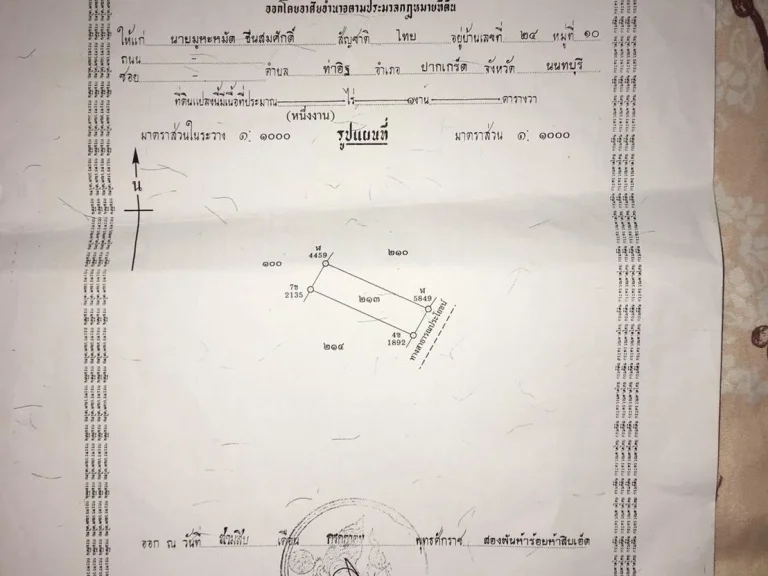 ออกโดยอาศัยอำนาจตามประมวลกฎหมายที่ดิน
ให้แก่ นายมูหะหมัด ชื่นสมศักดิ์ สัญชาติ ไทย อยู่บ้านเลขที่ ๒๔ หมู่ที่ ๑๐
ถนน -
ซอย - ตำบล ท่าอิฐ อำเภอ ปากเกร็ด จังหวัด นนทบุรี
ที่ดินแปลงนี้มีเนื้อที่ประมาณ - ไร่ ๑งาน - ตารางวา
(หนึ่งงาน)
มาตราส่วนในระวาง ๑: ๑๐๐๐ รูปแผนที่ มาตราส่วน ๑: ๑๐๐๐
น
ฬ
4459
๒๑๐
๑๐๐
7ข
2135
๒๑๓
ฬ
5849
4ข
1892
ทางสาธารณประโยชน์
๒๑๔
ออก ณ วันที่ สามสิบ เดือน กรกฎาคม พุทธศักราช สองพันห้าร้อยห้าสิบเอ็ด